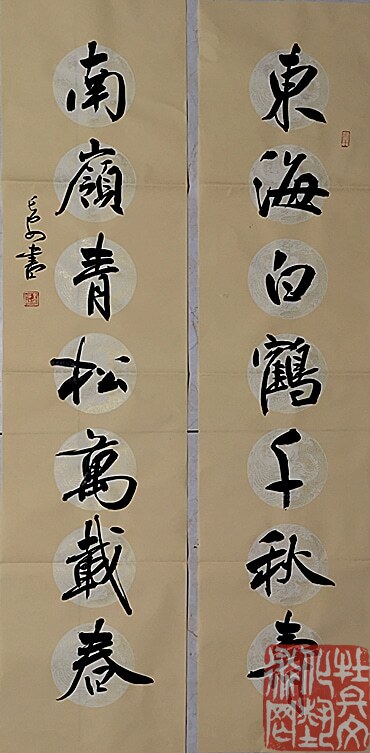 東海白鶴千秋壽
南嶺青松萬載春